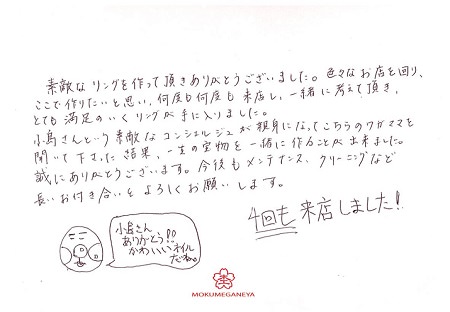 素敵なリングを作って頂きありがとうございました。色々なお店を回り、
ここで作りたいと思い、何度も何度も来店し、一緒に考えて頂き、
とても満足のいくリングが手に入りました。
小島さんという素敵なコンシェルジュが親身になってこちらのワガママを
聞いて下さった結果、一生の宝物を一緒に作ることが出来ました。
誠にありがとうございます。今後もメンテナンス、クリーニングなど
長いお付き合いをよろしくお願いします。
4回も来店しました!
小島さん
ありがとう!!
かわいいネイル
だね。
MOKUMEGANEYA